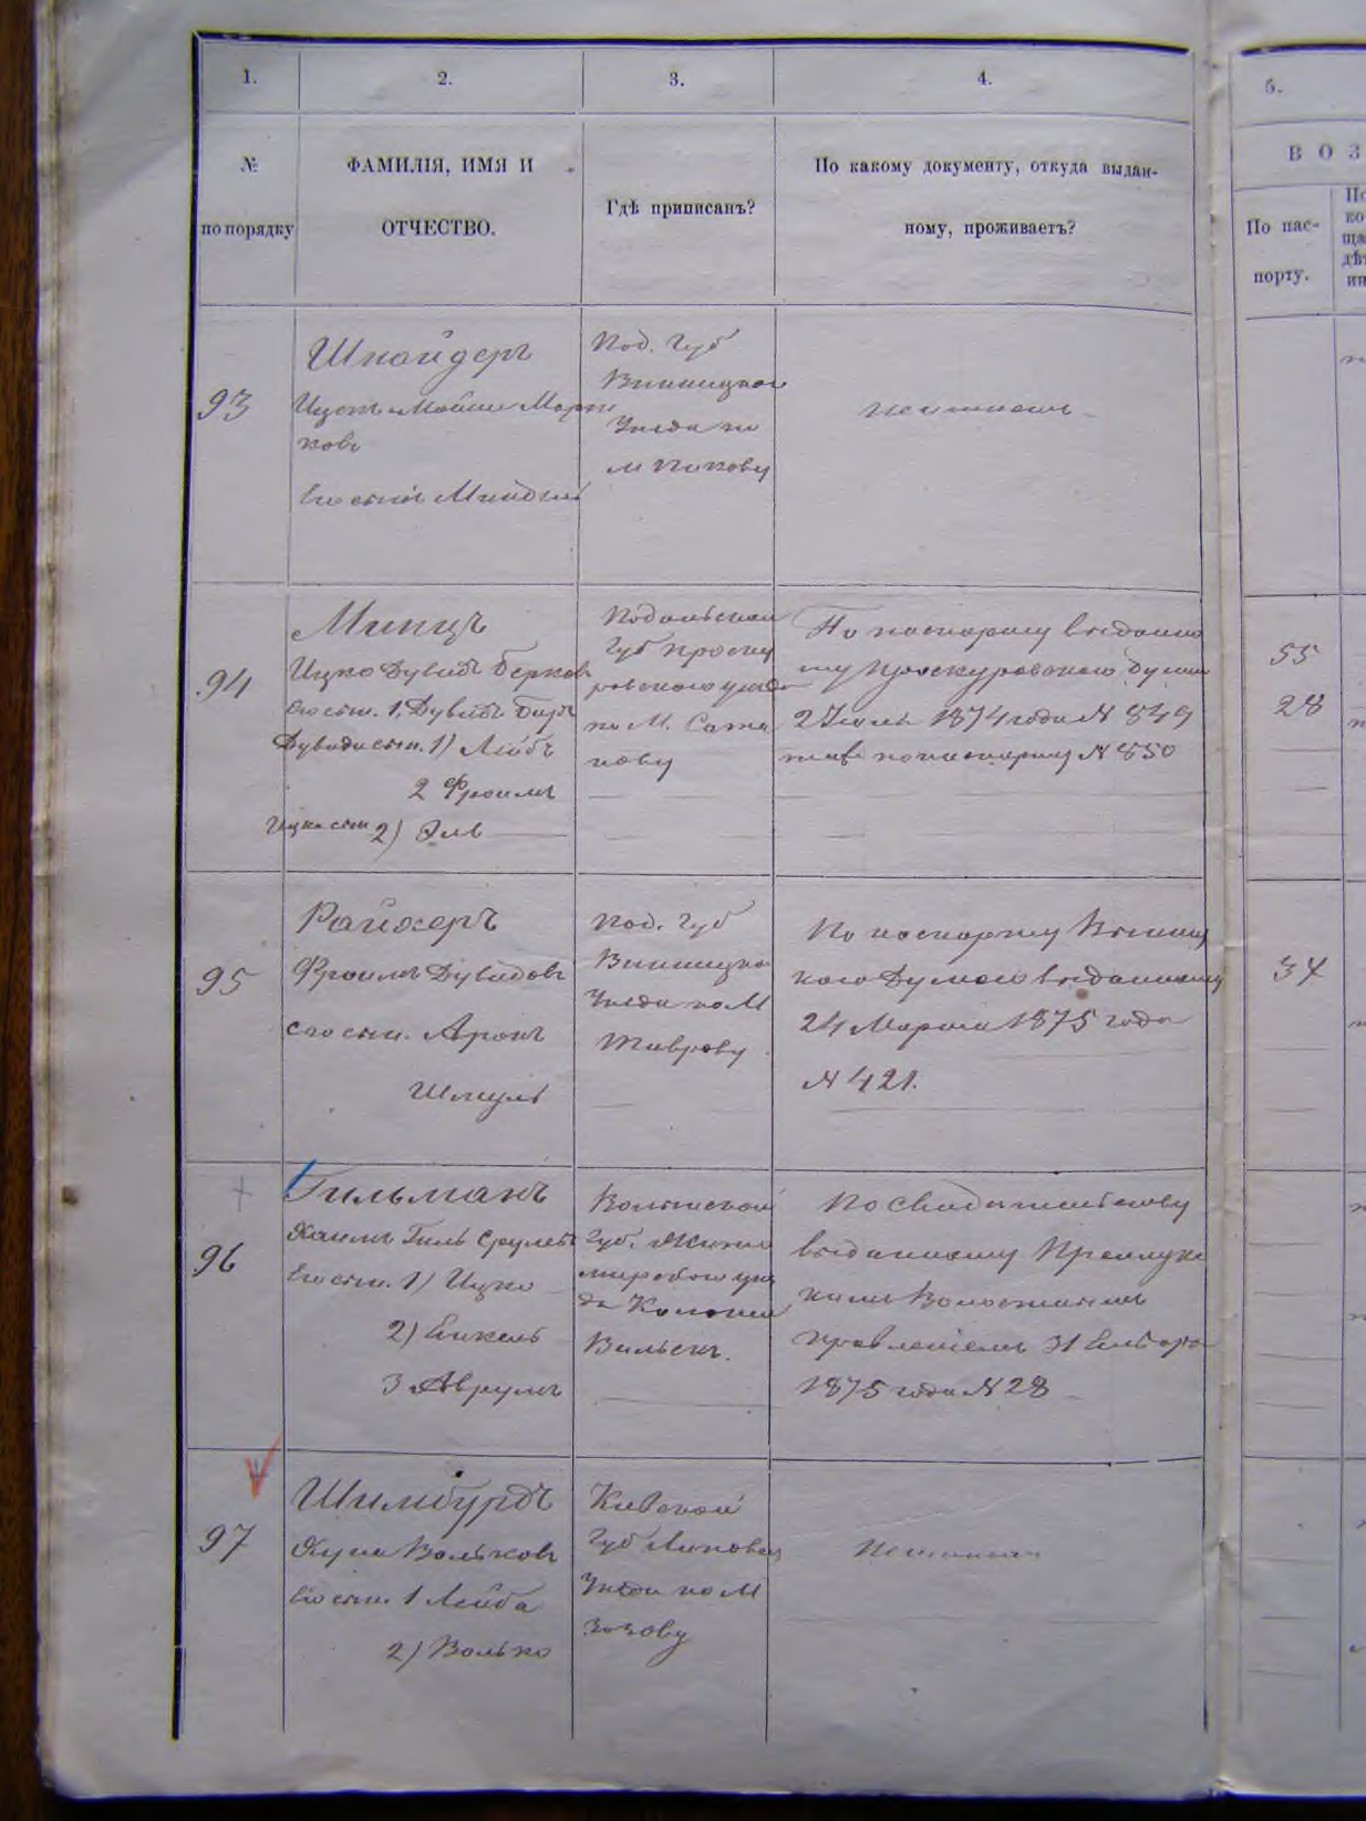 1.
2.
3.
4.
5.
№
по порядку
ФАМИЛІЯ, ИМЯ И
ОТЧЕСТВО.
Гдѣ приписанъ?
По какому документу, откуда выдан-
ному, проживаетъ?
ВОЗ
По пас-
порту.
93
Шнайдеръ
Мошко Марко
ковъ
Его сынъ
Под. Губ
Винницкаго
Уезда по
м Пикову
94
Минцъ
Ицко Дувидъ Берковъ
Его сын. 1. Дувидъ
Дувида сын. 1) Лейбъ
2 Фроимъ
Ицка сын 2) Эль
Подольской
Губ Проску
ровского уезда
по М. Сата
нову
По паспорту выданно
му Проскуровскою Думою
2 Июля 1874 года N 849
по паспорту N 850
55
28
95
Райхеръ
Фроимъ Дувидовъ
Его сын. Аронъ
Шмуль
Под. Губ
Винницка
Уезда по М
Тиврову
По паспорту Винниц
кою Думою выданному
24 Марта 1875 года
N 421.
34
96
Гильманъ
Хаимъ Гиль Срулевъ
Его сын. 1) Ицко
2) Енкель
3 Аврумъ
Волынской
Губ. Жито
мирского уез
да Колонии
Вильскъ.
По Свидетельству
выданному
Волостнымъ
правлениемъ 31 Января
1875 года N 28
97
Шимбурдъ
Вольковъ
Его сын. 1 Лейба
2) Волько
Киевской
Губ Липовец
Уезда по М
Зозову